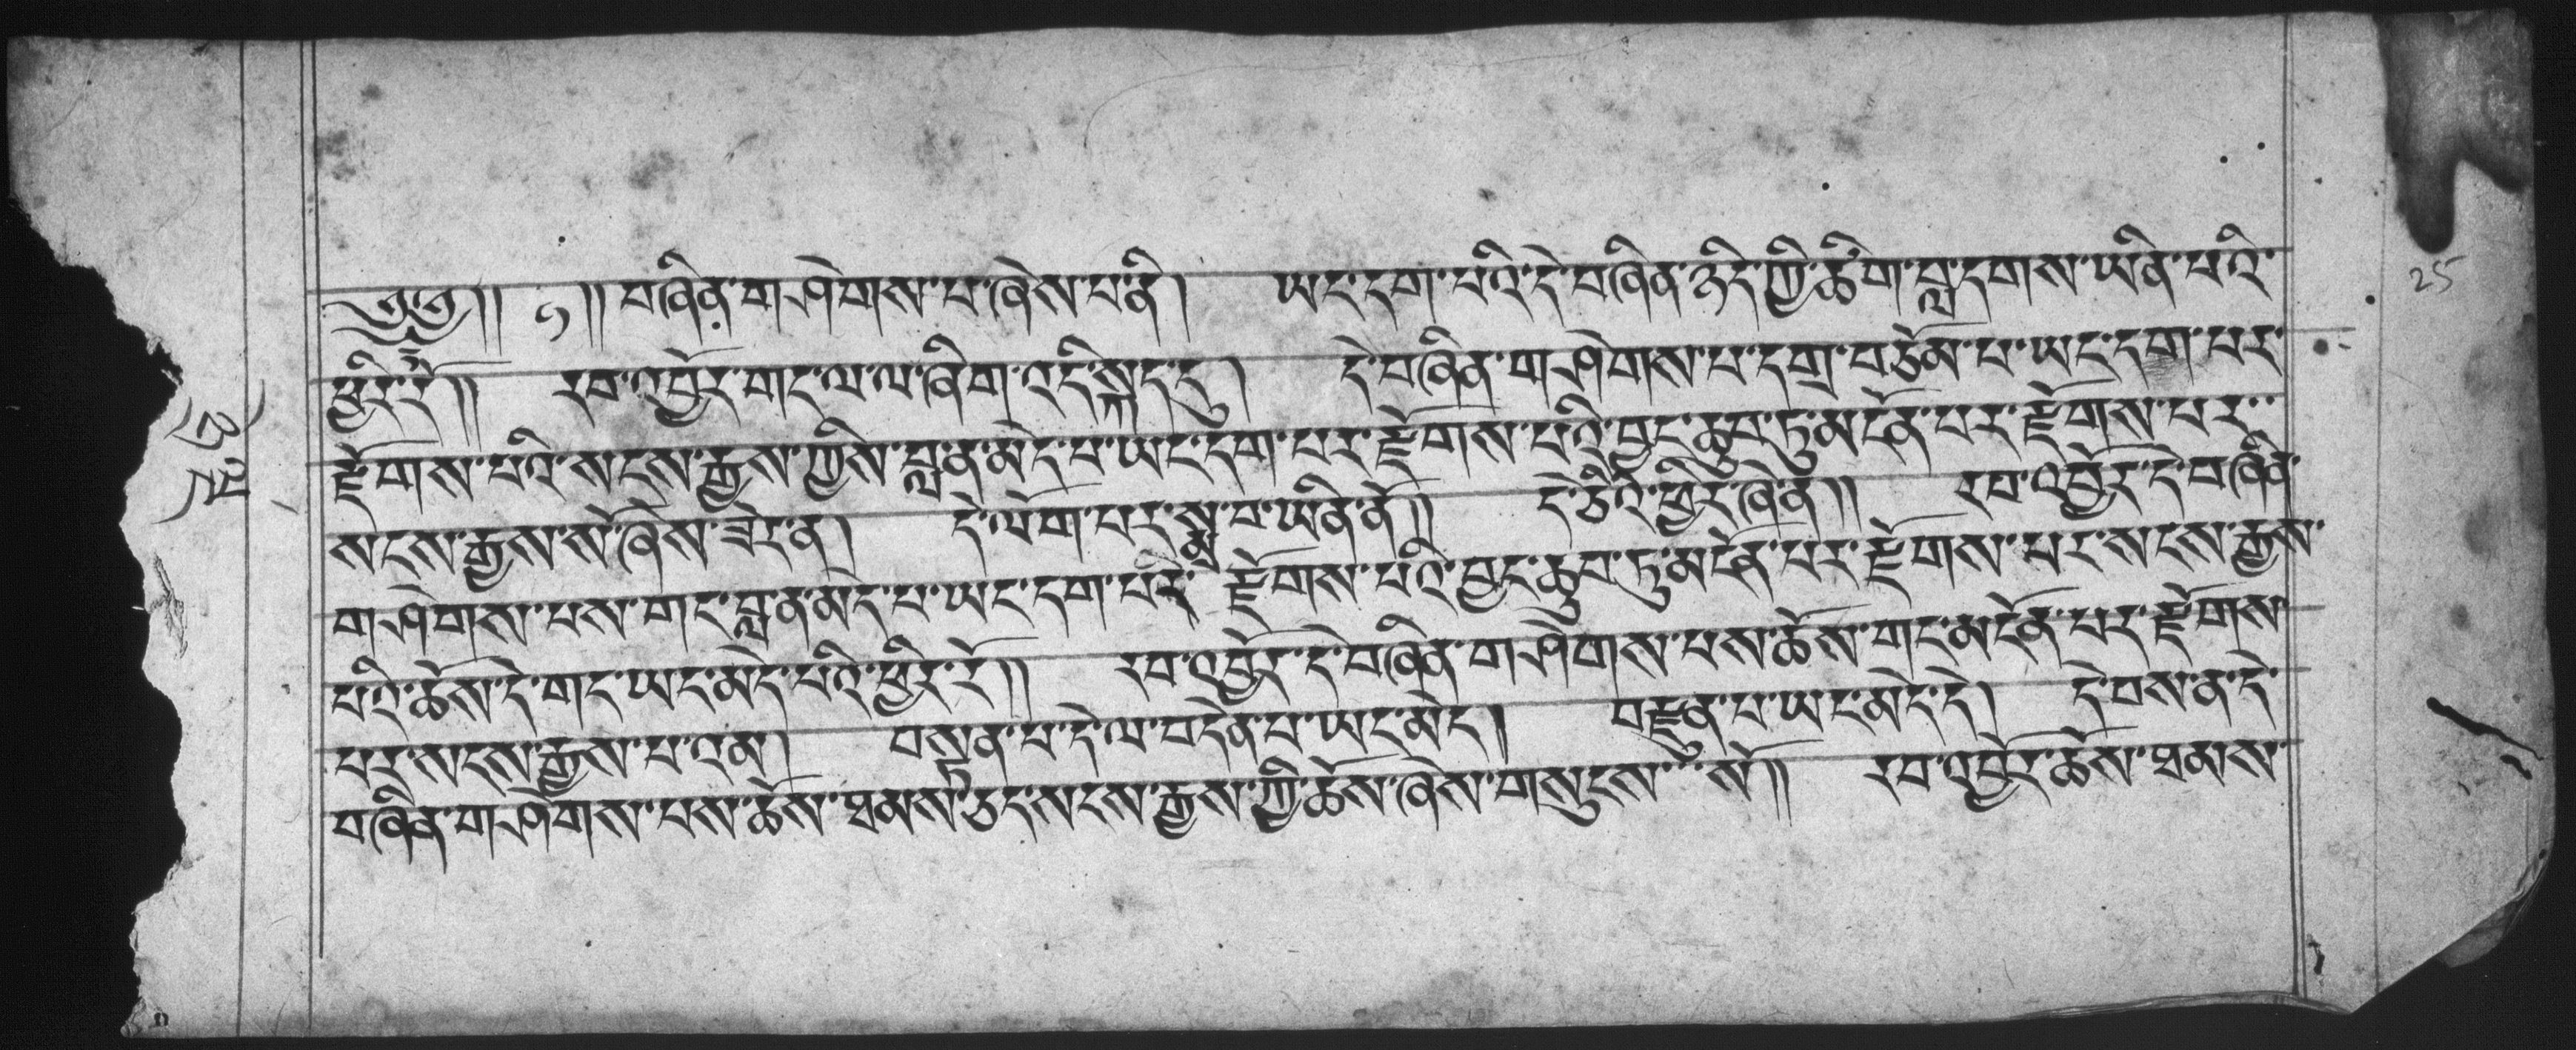 ༄༅།། ༡།། བཞིན་གཤེགས་པ་ཞེས་པ་ནི། ཡང་དག་པའི་དེ་བཞིན་ཉིད་ཀྱི་ཚིག་བླ་དགས་ཡིན་པའི་
ཕྱིར་རོ།། རབ་འབྱོར་གང་ལ་ལ་ཞིག་འདི་སྐད་དུ། དེ་བཞིན་གཤེགས་པ་དགྲ་བཅོམ་པ་ཡང་དག་པར་
རྫོགས་པའི་སངས་རྒྱས་ཀྱིས་བླ་ན་མེད་པ་ཡང་དག་པར་རྫོགས་པའི་བྱང་ཆུབ་ཏུ་མངོན་པར་རྫོགས་པར་
སངས་རྒྱས་སོ་ཞེས་ཟེར་ན། དེ་ལོག་པར་སྨྲ་བ་ཡིན་ནོ།། དེ་ཅིའི་ཕྱིར་ཞེ་ན།། རབ་འབྱོར་དེ་བཞིན་
གཤེགས་པས་གང་བླ་ན་མེད་པ་ཡང་དག་པར་རྫོགས་པའི་བྱང་ཆུབ་ཏུ་མངོན་པར་རྫོགས་པར་སངས་རྒྱས་
པའི་ཆོས་དེ་གང་ཡང་མེད་པའི་ཕྱིར་རོ།། རབ་འབྱོར་དེ་བཞིན་གཤེགས་པས་ཆོས་གང་མངོན་པར་རྫོགས་
པར་སངས་རྒྱས་པ་འམ། བསྟན་པ་དེ་ལ་བདེན་པ་ཡང་མེད། བརྫུན་པ་ཡང་མེད་དེ། དེ་བས་ན་དེ་
བཞིན་གཤེགས་པས་ཆོས་ཐམས་ཅད་སངས་རྒྱས་ཀྱི་ཆོས་ཞེས་གསུངས་སོ།། རབ་འབྱོར་ཆོས་ཐམས་
25